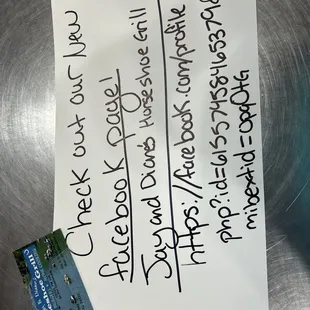 Check out our New
facebook page!
Jay and Diane's Horseshoe Grill
https://facebook.com/profile
php?id=615574584653798
mibextid=opq0tG